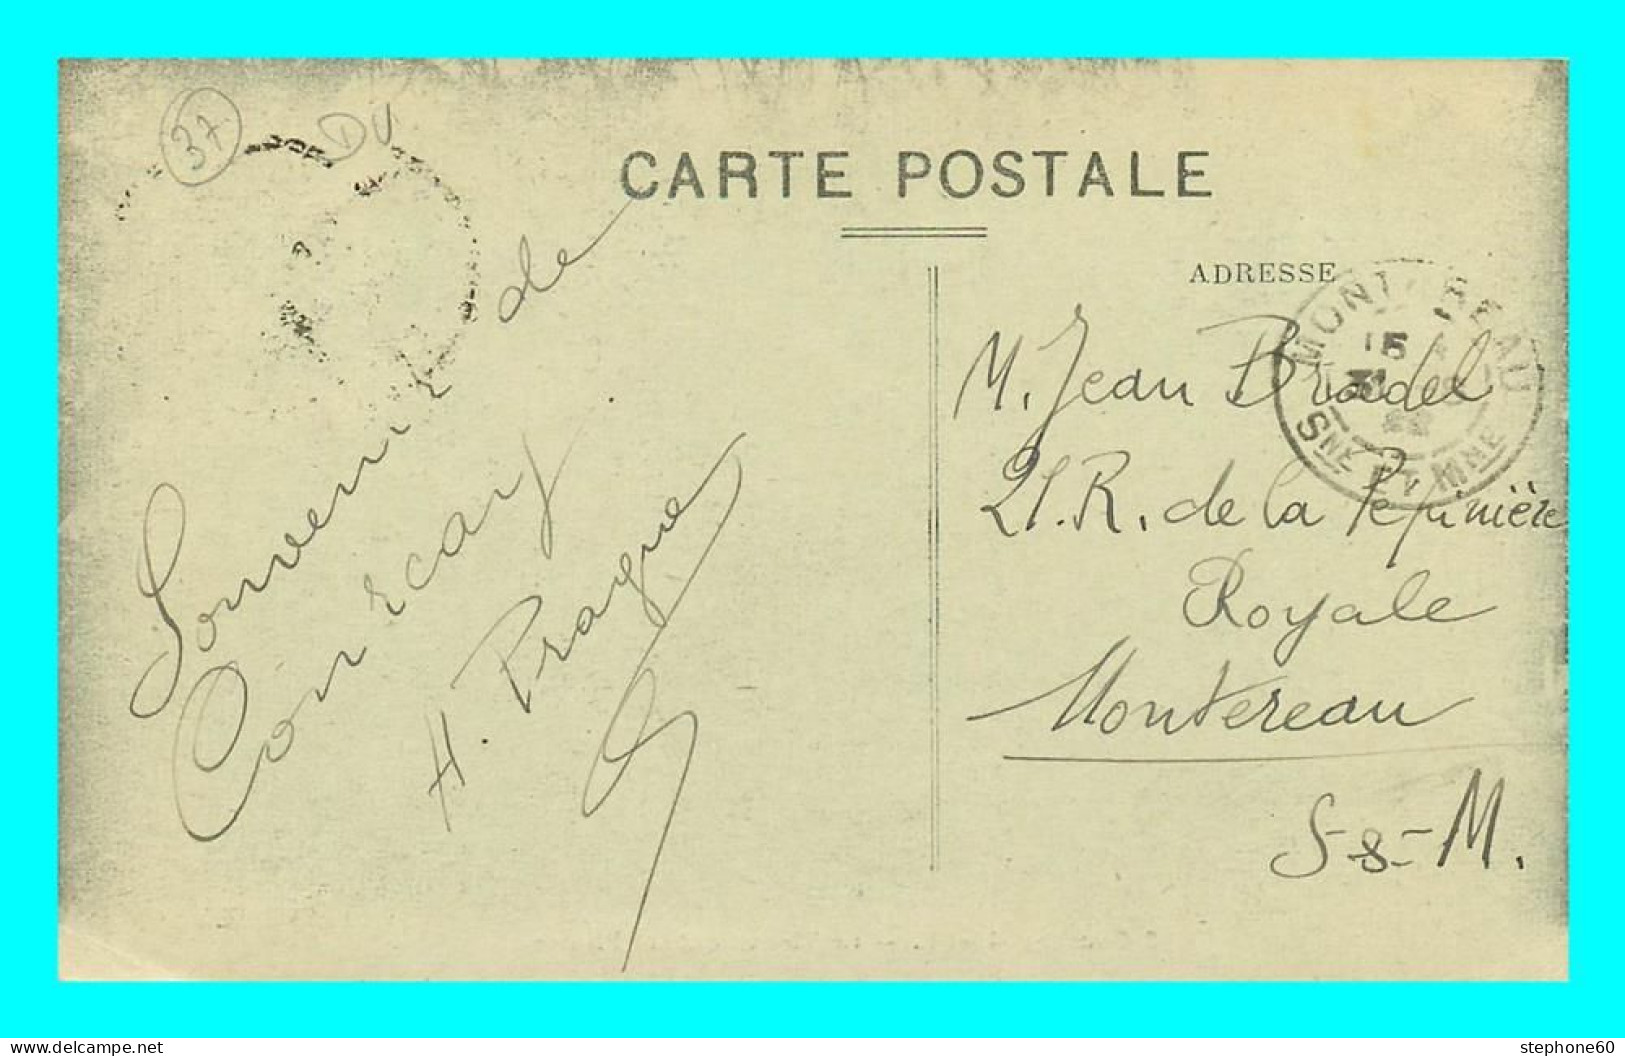 37
DU
CARTE POSTALE
Souvenir de
Cormery
H. Prague
ADRESSE
MONTEREAU
15
31
SNE ET MNE
M. Jean Bradel
21. R. de la Pépinière
Royale
Montereau
S-&-M.
www.delcampe.net
stephone60